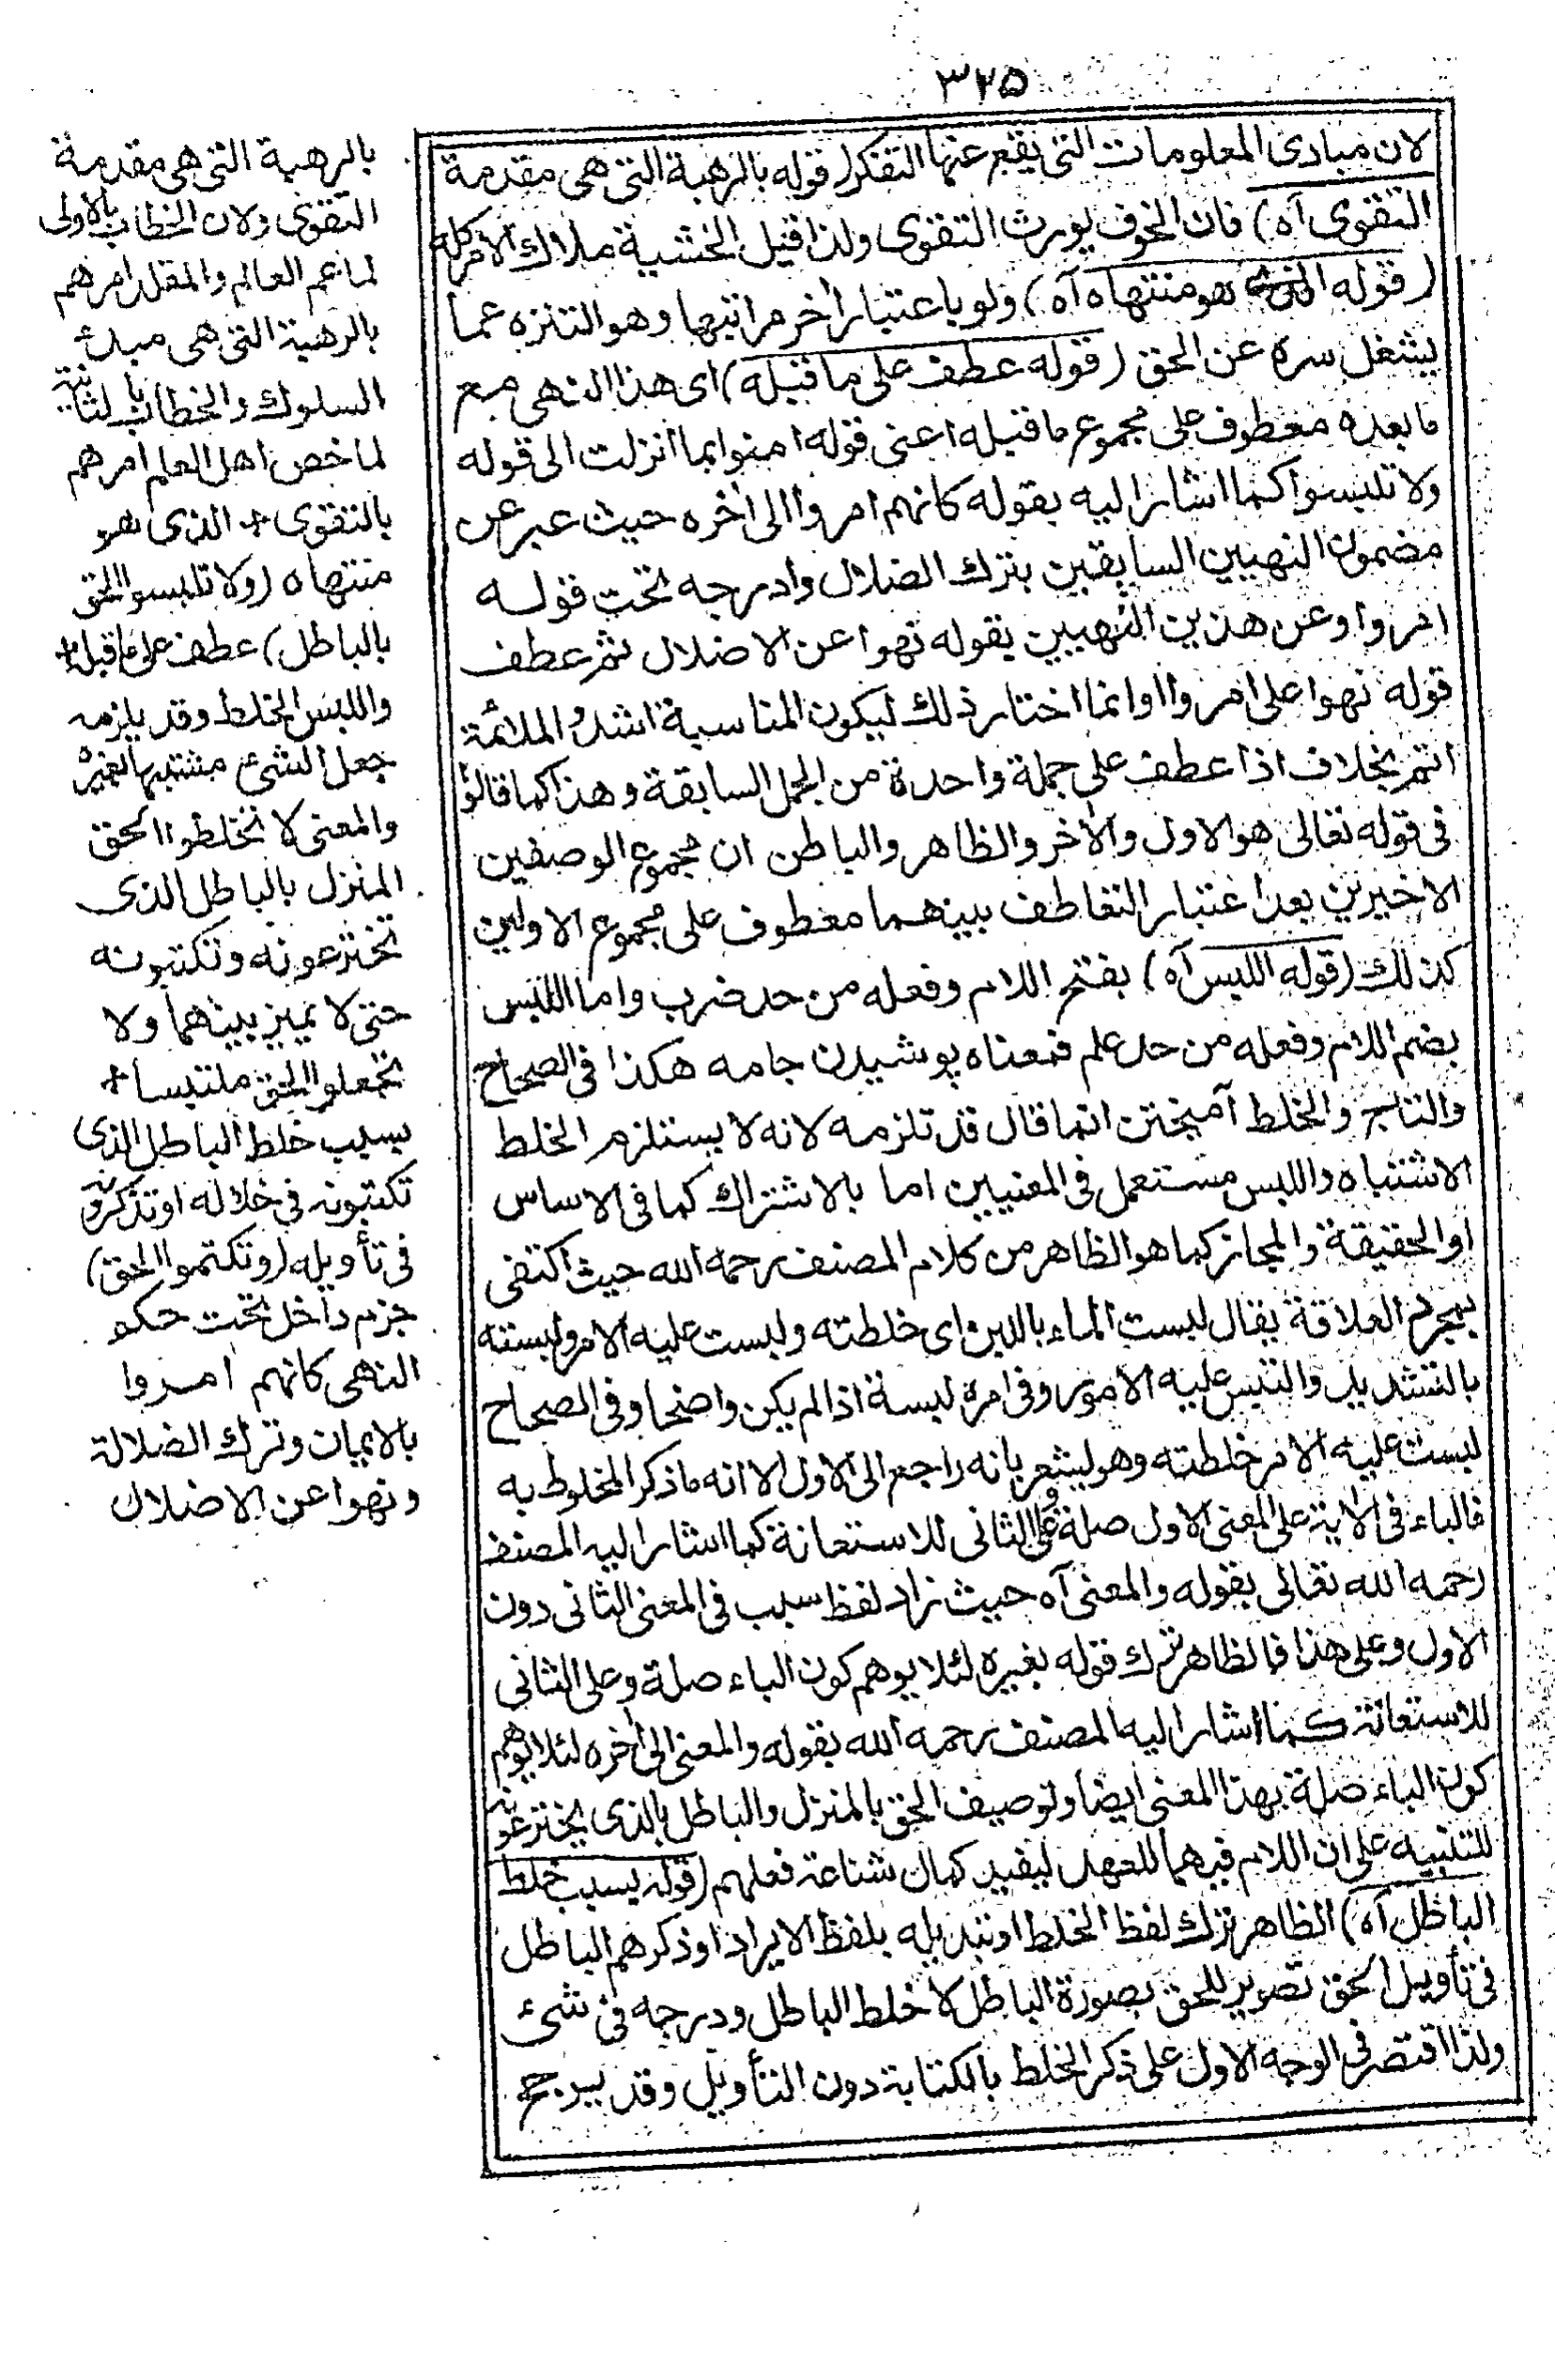 ٣٢۵
لان مبادى المعلومات التى يقع عنها التفكر (قوله بالرهبة التى هى مقدمة
التقوى آه) فان الخوف يورث التقوى ولذا قيل الخشية ملاك الامر كله
(قوله الذى هو منتهاه آه) ولو باعتبار أخر مراتبها وهو التنزه عما
يشغل سره عن الحق (قوله عطف على ما قبله) اى هذا النهى مع
ما بعده معطوف على مجموع ما قبله اعنى قوله امنوا بما انزلت الى قوله
ولا تلبسوا كما اشار اليه بقوله كانهم امروا الى أخره حيث عبر عن
مضمون النهيين السابقين بترك الضلال وادرجه تحت قوله
امروا وعن هذين النهيين بقوله نهوا عن الاضلال ثم عطف
قوله نهوا على امروا وانما اختار ذلك ليكون المناسبة اشد والملائمة
اتم بخلاف اذا عطف على جملة واحدة من الجمل السابقة وهذا كما قالوا
فى قوله تعالى هو الاول والأخر والظاهر والباطن ان مجموع الوصفين
الاخيرين بعد اعتبار التعاطف بينهما معطوف على مجموع الاولين
كذلك (قوله اللبس آه) بفتح اللام وفعله من حد ضرب واما اللبس
بضم اللام وفعله من حد علم فمعناه پوشيدن جامه هكذا فى الصحاح
والتاج والخلط آميختن انما قال قد تلزمه لانه لا يستلزم الخلط
الاشتباه واللبس مستعمل فى المعنيين اما بالاشتراك كما فى الاساس
او الحقيقة والمجاز كما هو الظاهر من كلام المصنف رحمه الله حيث اكتفى
بمجرد العلاقة يقال لبست الماء باللبن اى خلطته ولبست عليه الامر ولبسته
بالتشديد والتبس عليه الامور وفى امره لبسة اذا لم يكن واضحا وفى الصحاح
لبست عليه الامر خلطته وهو يشعر بانه راجع الى الاول الا انه ما ذكر المخلوط به
فالباء فى الاية على المعنى الاول صلة وعلى الثانى للاستعانة كما اشار اليه المصنف
رحمه الله تعالى بقوله والمعنى آه حيث زاد لفظ سبب فى المعنى الثانى دون
الاول وعلى هذا فالظاهر ترك قوله بغيره لئلا يوهم كون الباء صلة وعلى الثانى
للاستعانة كما اشار اليه المصنف رحمه الله بقوله والمعنى الى أخره لئلا يوهم
كون الباء صلة بهذا المعنى ايضا وتوصيف الحق بالمنزل والباطل بالذى يخترعونه
للتنبيه على ان اللام فيهما للعهد ليفيد كمال شناعة فعلهم (قوله بسبب خلط
الباطل آه) الظاهر ترك لفظ الخلط او تبديله بلفظ الايراد او ذكرهم الباطل
فى تأويل الحق تصوير للحق بصورة الباطل لا خلط الباطل ودرجه فى شئ
ولذا اقتصر فى الوجه الاول على ذكر الخلط بالكتابة دون التأويل وقد يرجح
بالرهبة التى هى مقدمة
التقوى ولان الخطاب بالاولى
لما عم العالم والمقلد امرهم
بالرهبة التى هى مبدئ
السلوك والخطاب بالثانية
لما خص اهل العلم امرهم
بالتقوى + الذى هو
منتهاه (ولا تلبسوا الحق
بالباطل) عطف على ما قبله +
واللبس الخلط وقد يلزمه
جعل الشئ مشتبها بغيره
والمعنى لا تخلطوا الحق
المنزل بالباطل الذى
تخترعونه وتكتبونه
حتى لا يميز بينهما ولا
تجعلوا الحق ملتبسا +
بسبب خلط الباطل الذى
تكتبونه فى خلاله او تذكرونه
فى تأويله (وتكتموا الحق)
جزم داخل تحت حكم
النهى كانهم امروا
بالايمان وترك الضلالة
ونهوا عن الاضلال